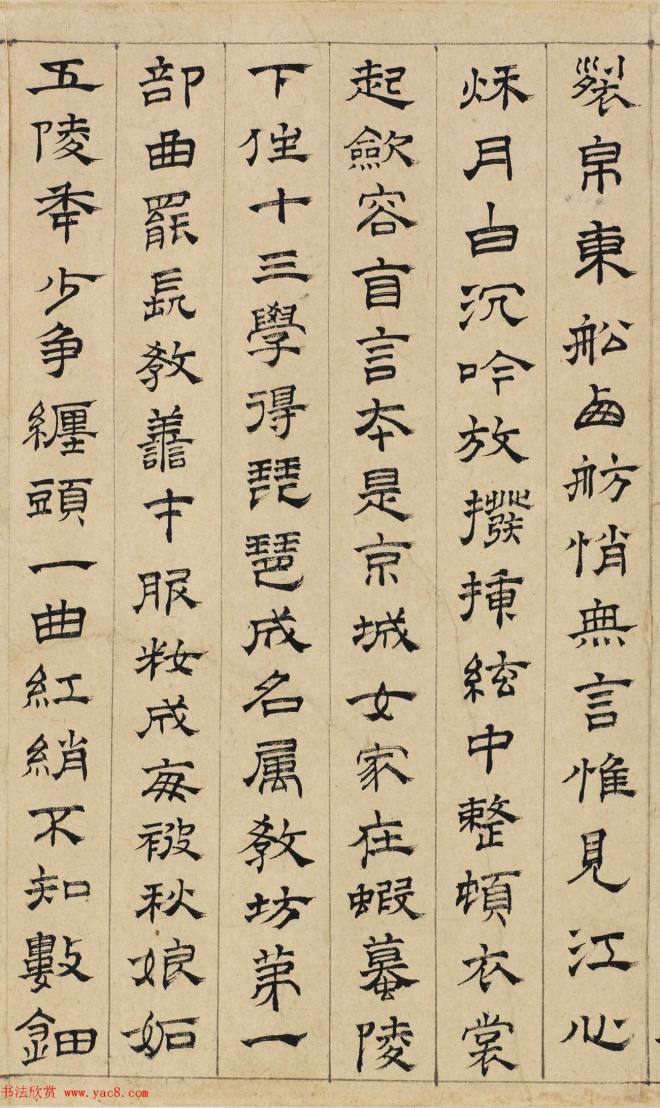 裂帛東船西舫悄無言惟見江心
秋月白沉吟放撥插絃中整頓衣裳
起歛容自言本是京城女家在蝦蟇陵
下住十三學得琵琶成名属教坊第一
部曲罷長教善才服籹成每被秋娘妬
五陵年少争纏頭一曲紅綃不知數鈿
书法欣赏 www.yac8.com